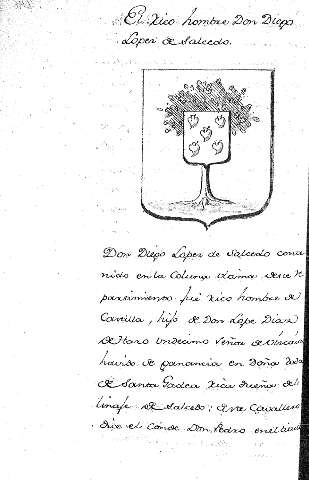 El Rico hombre Don Diego
Lopez de Salcedo.
Don Diego Lopez de Salcedo conte
nido en la Coluna
partimiento fué Rico hombre de
Castilla, hijo de Don Lope Diaz
de Haro Undecimo Señor de Vizcaia
havido de ganancia en Doña
de Santa Gadea Rica dueña del
linaje de Salcedo; este Cavallero
dice el Conde Don Pedro en el